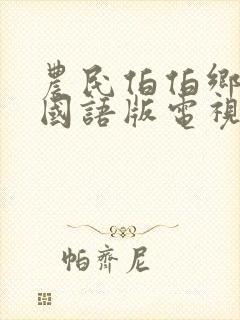 農民伯伯鄉
國語版電視
帕齊尼